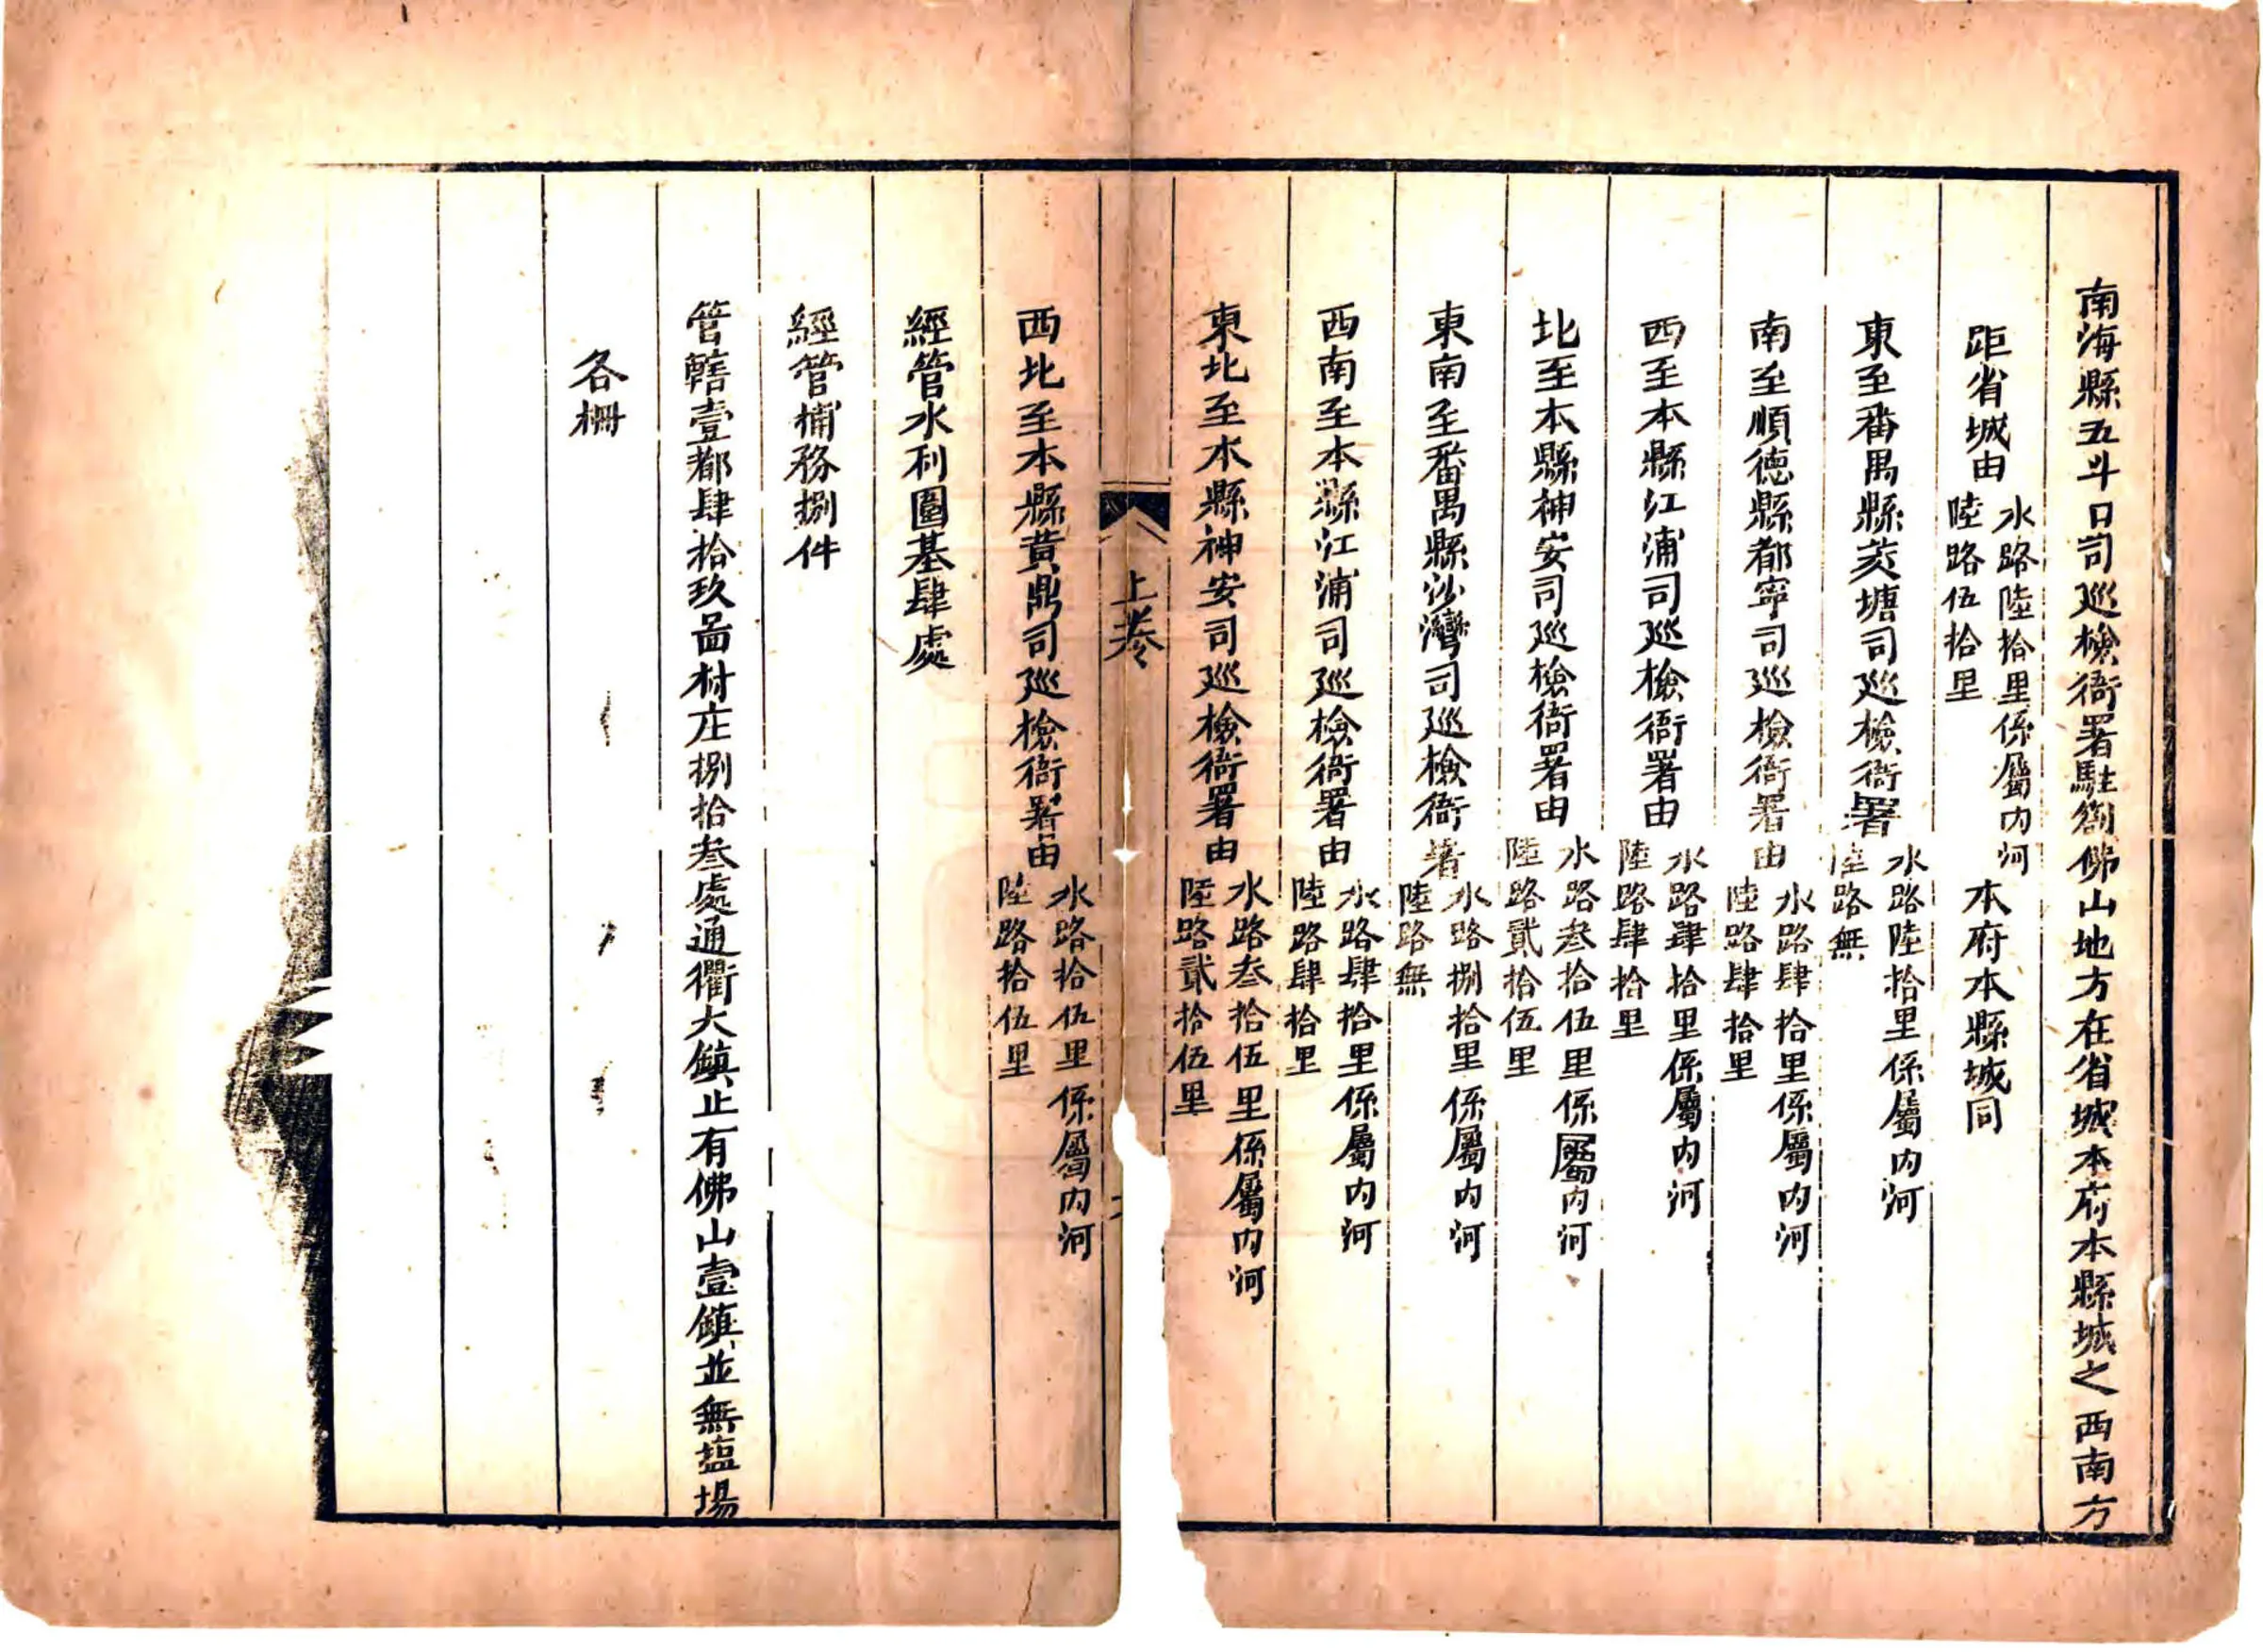 南海縣五斗口司巡檢衙署駐劄佛山地方在省城本府本縣城之西南方
距省城由水路陸拾里係屬内河陸路伍拾里本府本縣城同
東至番禺縣茭塘司巡檢衙署水路陸拾里係屬内河陸路無
南至順德縣都寧司巡檢衙署由水路肆拾里係屬内河陸路肆拾里
西至本縣江浦司巡檢衙署由水路肆拾里係屬内河陸路肆拾里
北至本縣神安司巡檢衙署由水路叁拾伍里係屬内河陸路貳拾伍里
東南至番禺縣沙灣司巡檢衙署水路捌拾里係屬内河陸路無
西南至本縣江浦司巡檢衙署由水路肆拾里係屬内河陸路肆拾里
東北至本縣神安司巡檢衙署由水路叁拾伍里係屬内河陸路貳拾伍里
上卷
西北至本縣黄鼎司巡檢衙署由水路拾伍里係屬内河陸路拾伍里
經管水利圍基肆處
經管捕務捌件
管轄壹都肆拾玖啚村庄捌拾叁處通衢大鎮止有佛山壹鎮並無塩場
各柵